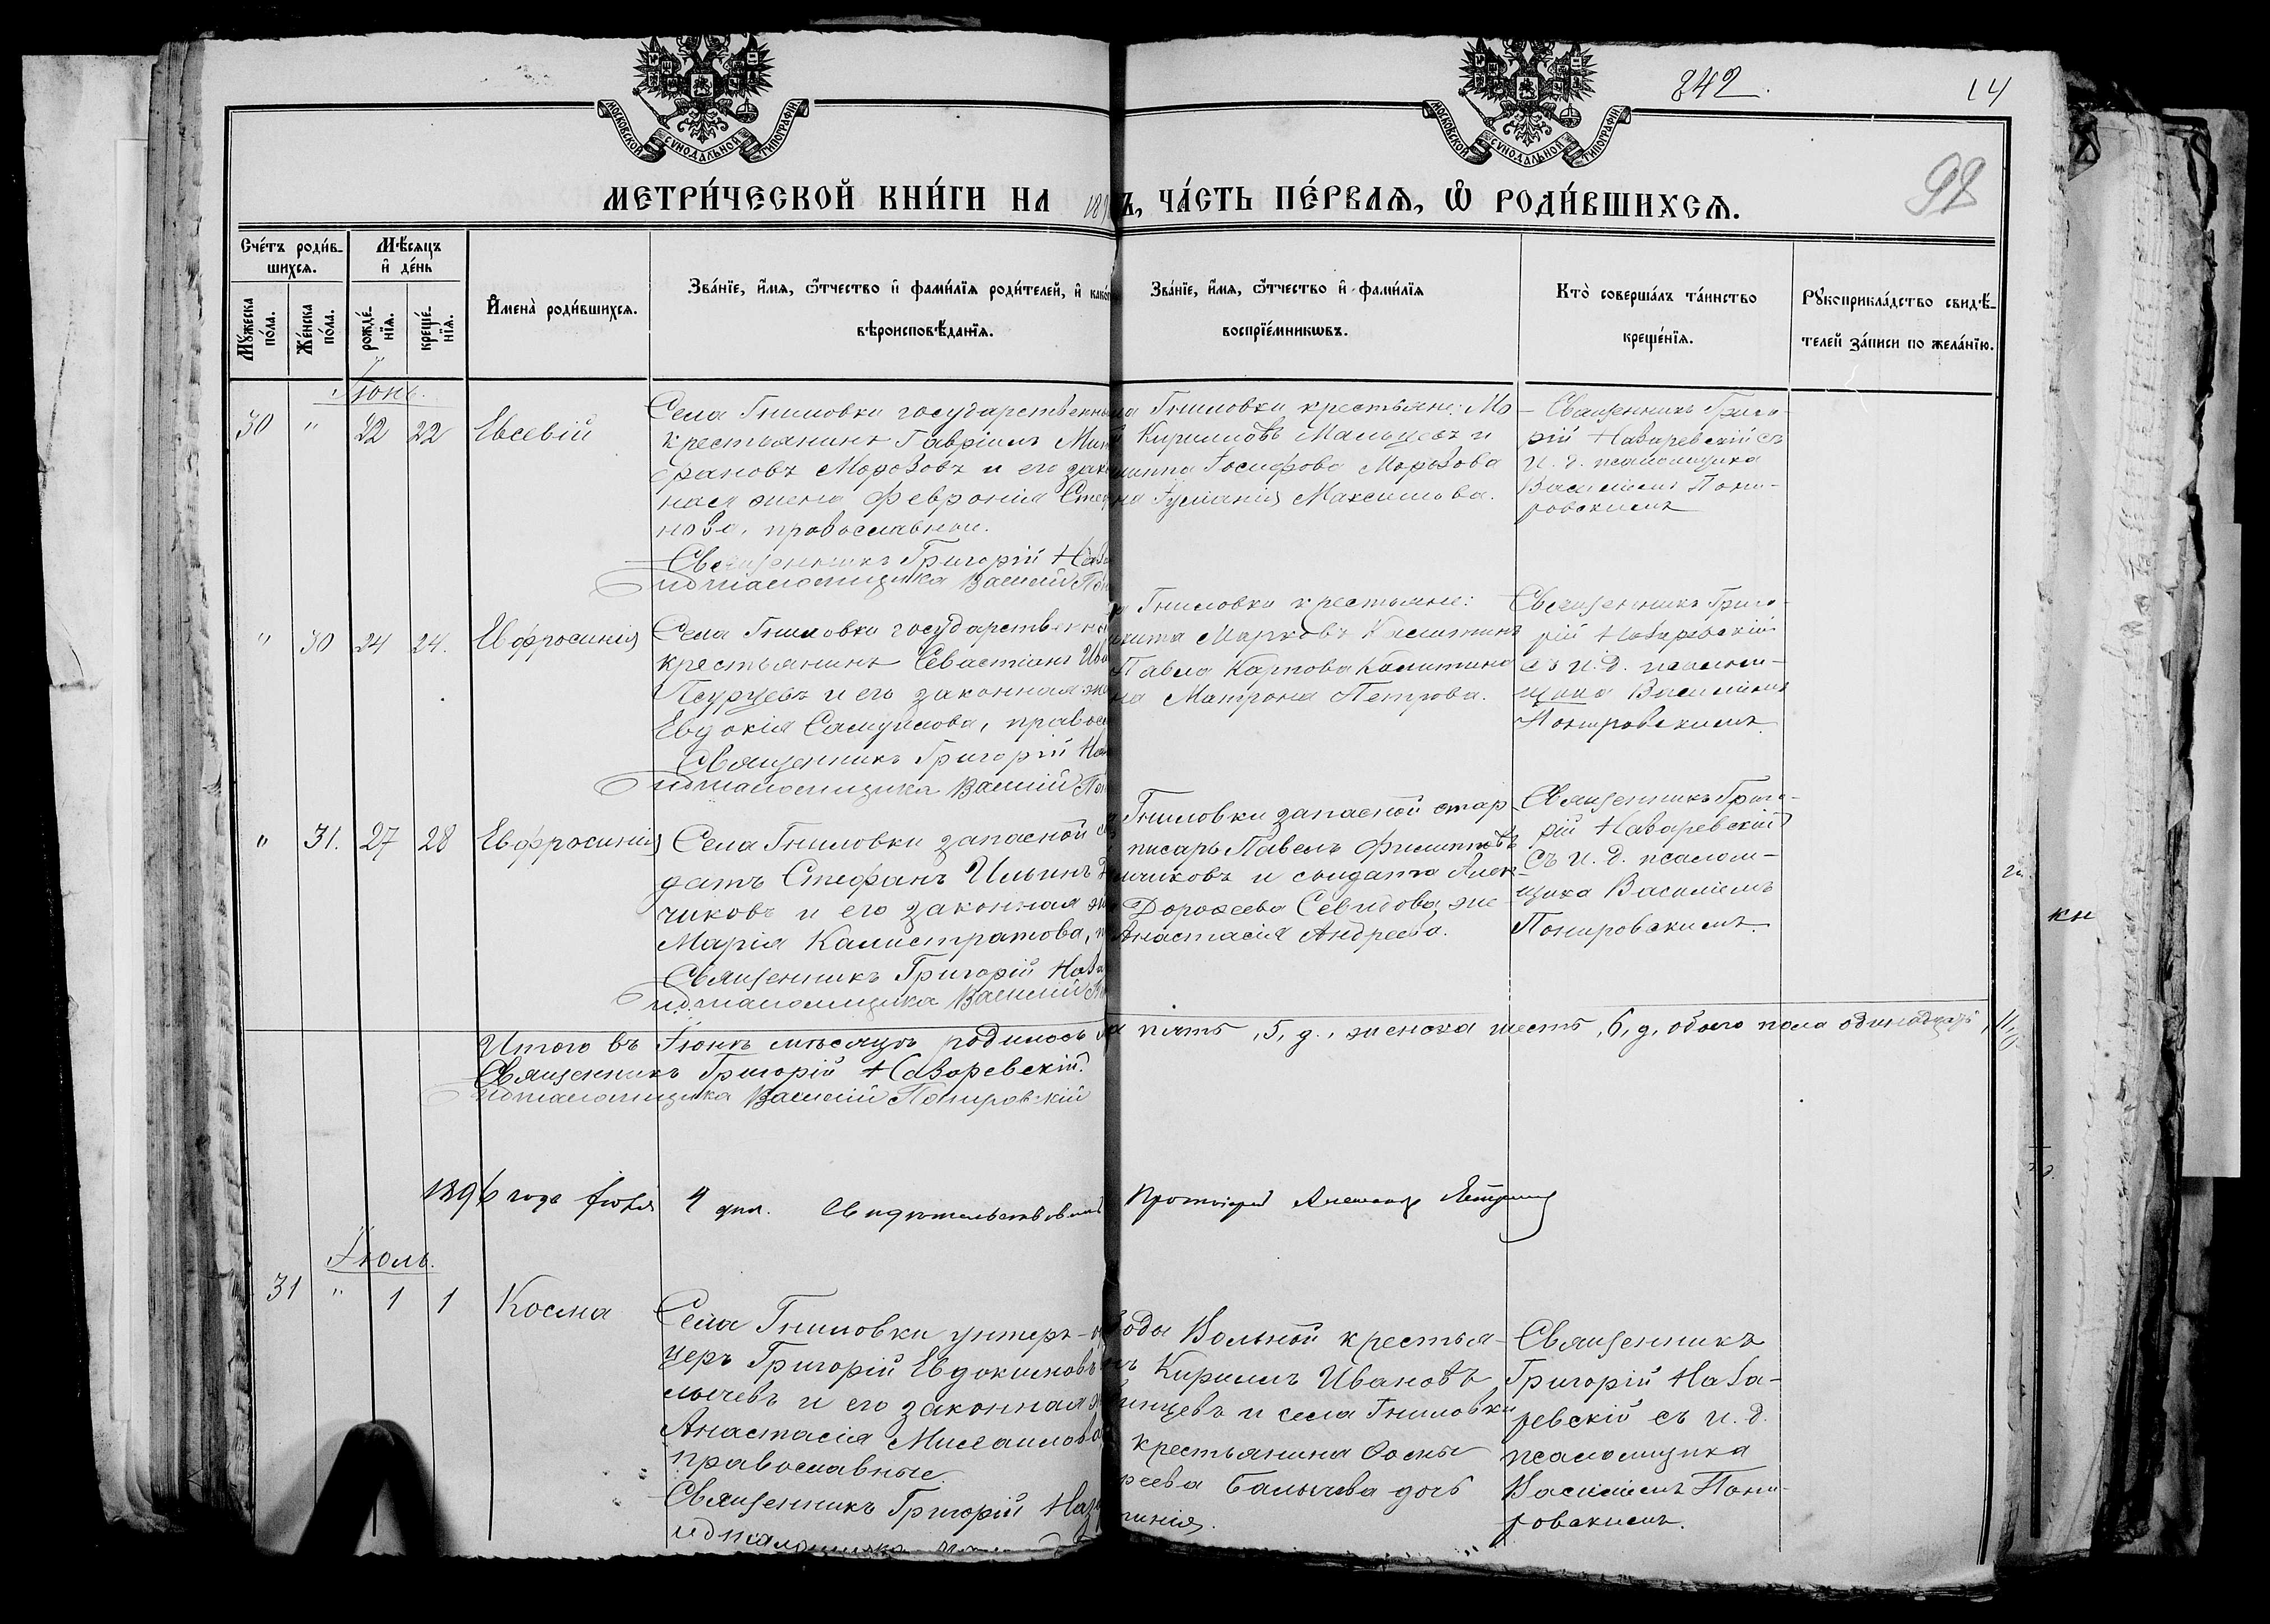 842.
14
98
МОСКОВСКОЙ СѴНОДАЛЬНОЙ ТИПОГРАФІИ
МОСКОВСКОЙ СѴНОДАЛЬНОЙ ТИПОГРАФІИ
МЕТРИ́ЧЕСКОЙ КНИ́ГИ НА 189 Ъ, ЧА́СТЬ ПЕ́РВАѦ, Ѿ РОДИ́ВШИХСѦ.
Сче́тъ роди́в-
шихсѧ.
Мѣ́сѧцъ
и҆ де́нь
Мꙋ́жеска по́ла.
Же́нска по́ла.
рожде́-
нїѧ.
креще́-
нїѧ.
И҆мена̀ роди́вшихсѧ.
Зва́нїе, и҆́мѧ, ѻ҆́тчество и҆ фами́лїѧ роди́телей, и҆ како́
вѣроисповѣ́данїѧ.
Зва́нїе, и҆́мѧ, ѻ҆́тчество и҆ фами́лїѧ
воспрїе́мникѡвъ.
Кто̀ соверша́лъ та́инство
креще́нїѧ.
Рꙋкоприкла́дство свидѣ́-
телей за́писи по жела́нїю.
Іюнь.
30 " 22 22 Евсевій
Села Гниловки государственны
крестьянинъ Гавріилъ Мит
фановъ Морозовъ и его зако
ная жена Феврония Сте
нова, православные.
Священникъ Григорій Наза
и.д. псаломщика Василій По
а Гниловки крестьяне: Мо
Кирилловъ Мальцевъ и
липпа Іосифова Морозова
на Іуліанія Максимова.
Священникъ Григо-
рій Назаревскій съ
и. д. псаломщика
Василіемъ Пони-
ровскимъ
" 30 24 24. Евфросинія
Села Гниловки государственны
крестьянинъ Севастіанъ Ива
Псурцевъ и его законная же
Евдокія Самуилова, правос
Священникъ Григорій На
и.д. псаломщика Василій По
а Гниловки крестьяне:
икита Марковъ Калитинъ
Павла Карпова Калитина
на Матрона Петрова.
Священникъ Григо-
рій Назаревскій
съ и. д. псалом-
щика Василіемъ
Понировскимъ.
" 31. 27 28 Евфросинія
Села Гниловки запасной с
датъ Стефанъ Ильинъ
чиковъ и его законная же
Марія Калистратова, п
Священникъ Григорій Наза
и.д. псаломщика Василій По
Гниловки запасной стар-
писарь Павелъ Филипповъ
чиковъ и солдата Алек-
Дорофеева Севидова же-
Анастасія Андреева.
Священникъ Григо-
рій Назаревскій
съ и. д. псалом-
щика Василіемъ
Понировскимъ.
Итого въ Іюнѣ мѣсяцѣ родилось м
а пять, 5, д., женска шесть, 6, д, обоего пола одинадцать, 11,
Священникъ Григорій Назаревскій.
и.д. псаломщика Василій Понировскій
1896 года Іюля 4 дня. Свидетельствовалъ
Протоіерей Александръ
Іюль.
31 " 1 1 Косма
Села Гниловки унтеръ-о
церъ Григорій Евдокимовъ
лычевъ и его законная ж
Анастасія Михаилова
православные.
Священникъ Григорій Наза
и.д. псаломщика
оды Вольной крестья-
нъ Кириллъ Ивановъ
инцевъ и села Гниловки
крестьянина Ѳомы
реева Балычева дочь
Священникъ
Григорій Наза-
ревскій съ и. д.
псаломщика
Василіемъ Пони-
ровскимъ.
кн